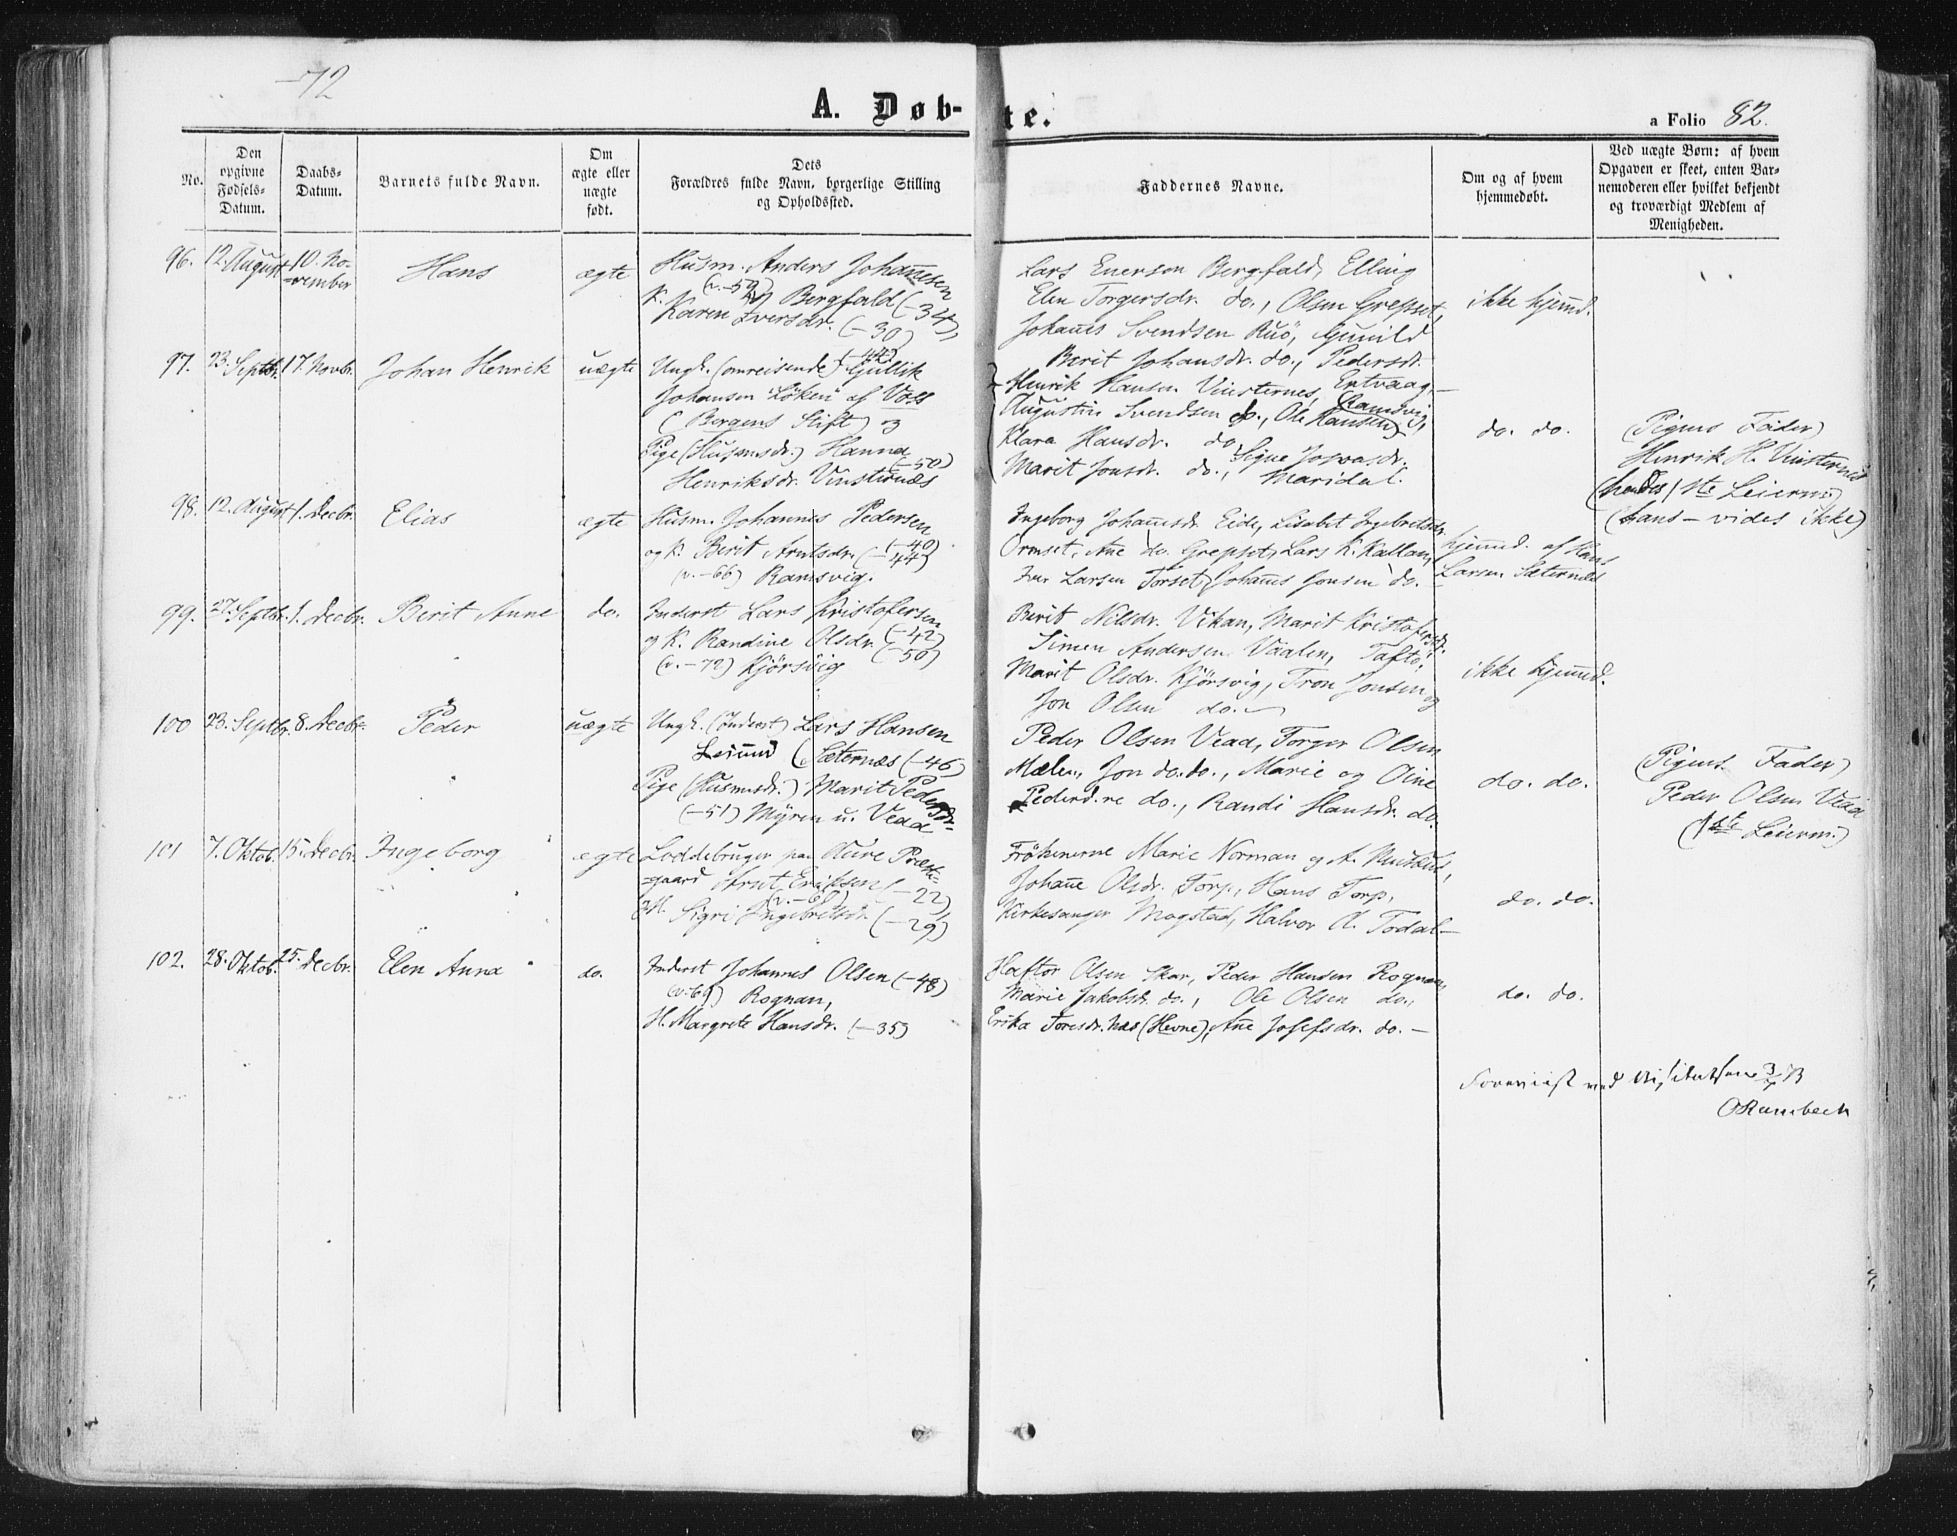 -72
A. Døb-
te.
a Folio 82.
No.
Den opgivne Fødsels-Datum.
Daabs-Datum.
Barnets fulde Navn.
Om ægte eller uægte født.
Dets Forældres fulde Navn, borgerlige Stilling og Opholdssted.
Faddernes Navne.
Om og af hvem hjemmedøbt.
Ved uægte Børn: af hvem Opgaven er skeet, enten Barnemoderen eller hvilket bekjendt og troværdigt Medlem af Menigheden.
96. 12. August 10. No-
vember
Hans
ægte
Husm. Anders Johannesen
(v. -59) Bergfald (-34),
K. Karen Iversdr. (-30)
Lars Enersen Bergfald, Elling
Elen Torgersdr. do., Olsen Grepset,
Johannes Svendsen Ruö, Gunild
Berit Johansdr. do., Pedersdr.
Ertvaag,
ikke hjemmd.
97. 23. Septbr. 17. Novbr.
Johan Henrik
uægte
Ungk. (omreisende) Gullik (-44)
Johansen Löken af Voss
(Bergens Stift) og
Pige (Husmsdr.) Hanna
Henriksdr. Vinsternæs (-50)
Henrik Hansen Vinsternes,
Augustin Svendsen do., Ole Hansen Ramsvig,
Klara Hansdr. do., Signe Joswasdr.
Marit Jonsdr. do., Maridal.
do. do.
(Pigens Fader)
Henrik H. Vinsternæs
(hendes 1ste Leierm.)
(hans - vides ikke)
98. 12. August 1. Decbr.
Elias
ægte
Husm. Johannes Pedersen
(-40)
og K. Berit Arntsdr. (-44)
(v. -66) Ramsvig.
Ingeborg Johannesdr. Eide, Lisabet Ingebretsdr.
Ormset, Ane do. Grepset, Lars K. Kallan,
Iver Larsen Torset, Johannes Jonsen do.
hjemmd. af Hans
Larsen Sæternæs
99. 27. Septbr. 1. Decbr.
Berit Anne
do.
Inderst Lars Kristofersen
og K. Randine Olsdr. (-42)
(v. -72) Kjörsvig (-50)
Berit Nilsdr. Vikan, Marit Kristofersdr.
Simen Andersen Vaalen, Taftö,
Marit Olsdr. Kjörsvig, Tron Jonsen og
Jon Olsen do.
ikke hjemmd.
100 23. Septbr. 8. Decbr.
Peder
uægte
Ungk. (Inderst) Lars Hansen
(Sæternæs (-46)
Pige (Husmsdr.) Marit Pedersdr.
(-51) Myren u. Vead
Peder Olsen Vead, Torger Olsen
Mælen, Jon do. do., Marie og Oline
Pedersd.re do., Randi Hansdr. do.
do. do.
(Pigens Fader)
Peder Olsen Vead
(1ste Leierm.)
101 7. Oktob. 15. Decbr.
Ingeborg
ægte
Loddebruger paa Aure Præste-
gaard Arnt Eriksen (-22),
(v. -68)
H. Sigri Ingebretsdr. (-29)
Frökenerne Marie Norman og A.
Johanne Olsdr. Torp, Hans Torp,
Kirkesanger Mogstad, Halvor H. Todal
do. do.
102. 28. Oktob. 25. Decbr.
Elen Anna
do.
Inderst Johannes Olsen (-48)
(v. -69) Rognan,
H. Margrete Hansdr. (-35)
Haftor Olsen Skar, Peder Hansen Rognan,
Marie Jakobsdr. do., Ole Olsen do.,
Erika Toresdr. Næs (Hevne), Ane Josefsdr. do.
do. do.
Foreviist ved Visitatsen 73